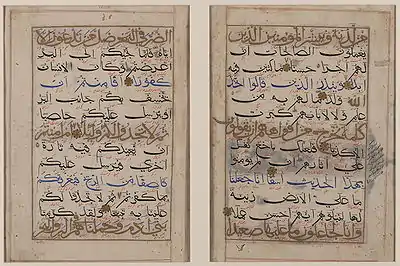 من لدنه ويبشر المؤمنين الذين
يعملون الصالحات ان
لهم اجرا حسنا ماكثين فيه
ابدا وينذر الذين قالوا اتخذ
الله ولدا ما لهم به من
علم ولا لابائهم كبرت
كلمة تخرج من افواههم ان يقولون
الا كذبا فلعلك باخع نفسك
على اثارهم ان لم يؤمنوا
بهذا الحديث اسفا انا جعلنا
ما على الارض زينة
لها لنبلوهم ايهم احسن عملا
وانا لجاعلون ما عليها صعيدا
الضر في البحر ضل من تدعون الا
اياه فلما نجاكم الى البر
اعرضتم وكان الانسان
كفورا افامنتم ان
يخسف بكم جانب البر
او يرسل عليكم حاصبا
ثم لا تجدوا لكم وكيلا ام امنتم
ان يعيدكم فيه تارة
اخرى فيرسل عليكم
قاصفا من الريح فيغرقكم
بما كفرتم ثم لا تجدوا لكم
علينا به تبيعا ولقد كرمنا
بني ادم وحملناهم في البر و